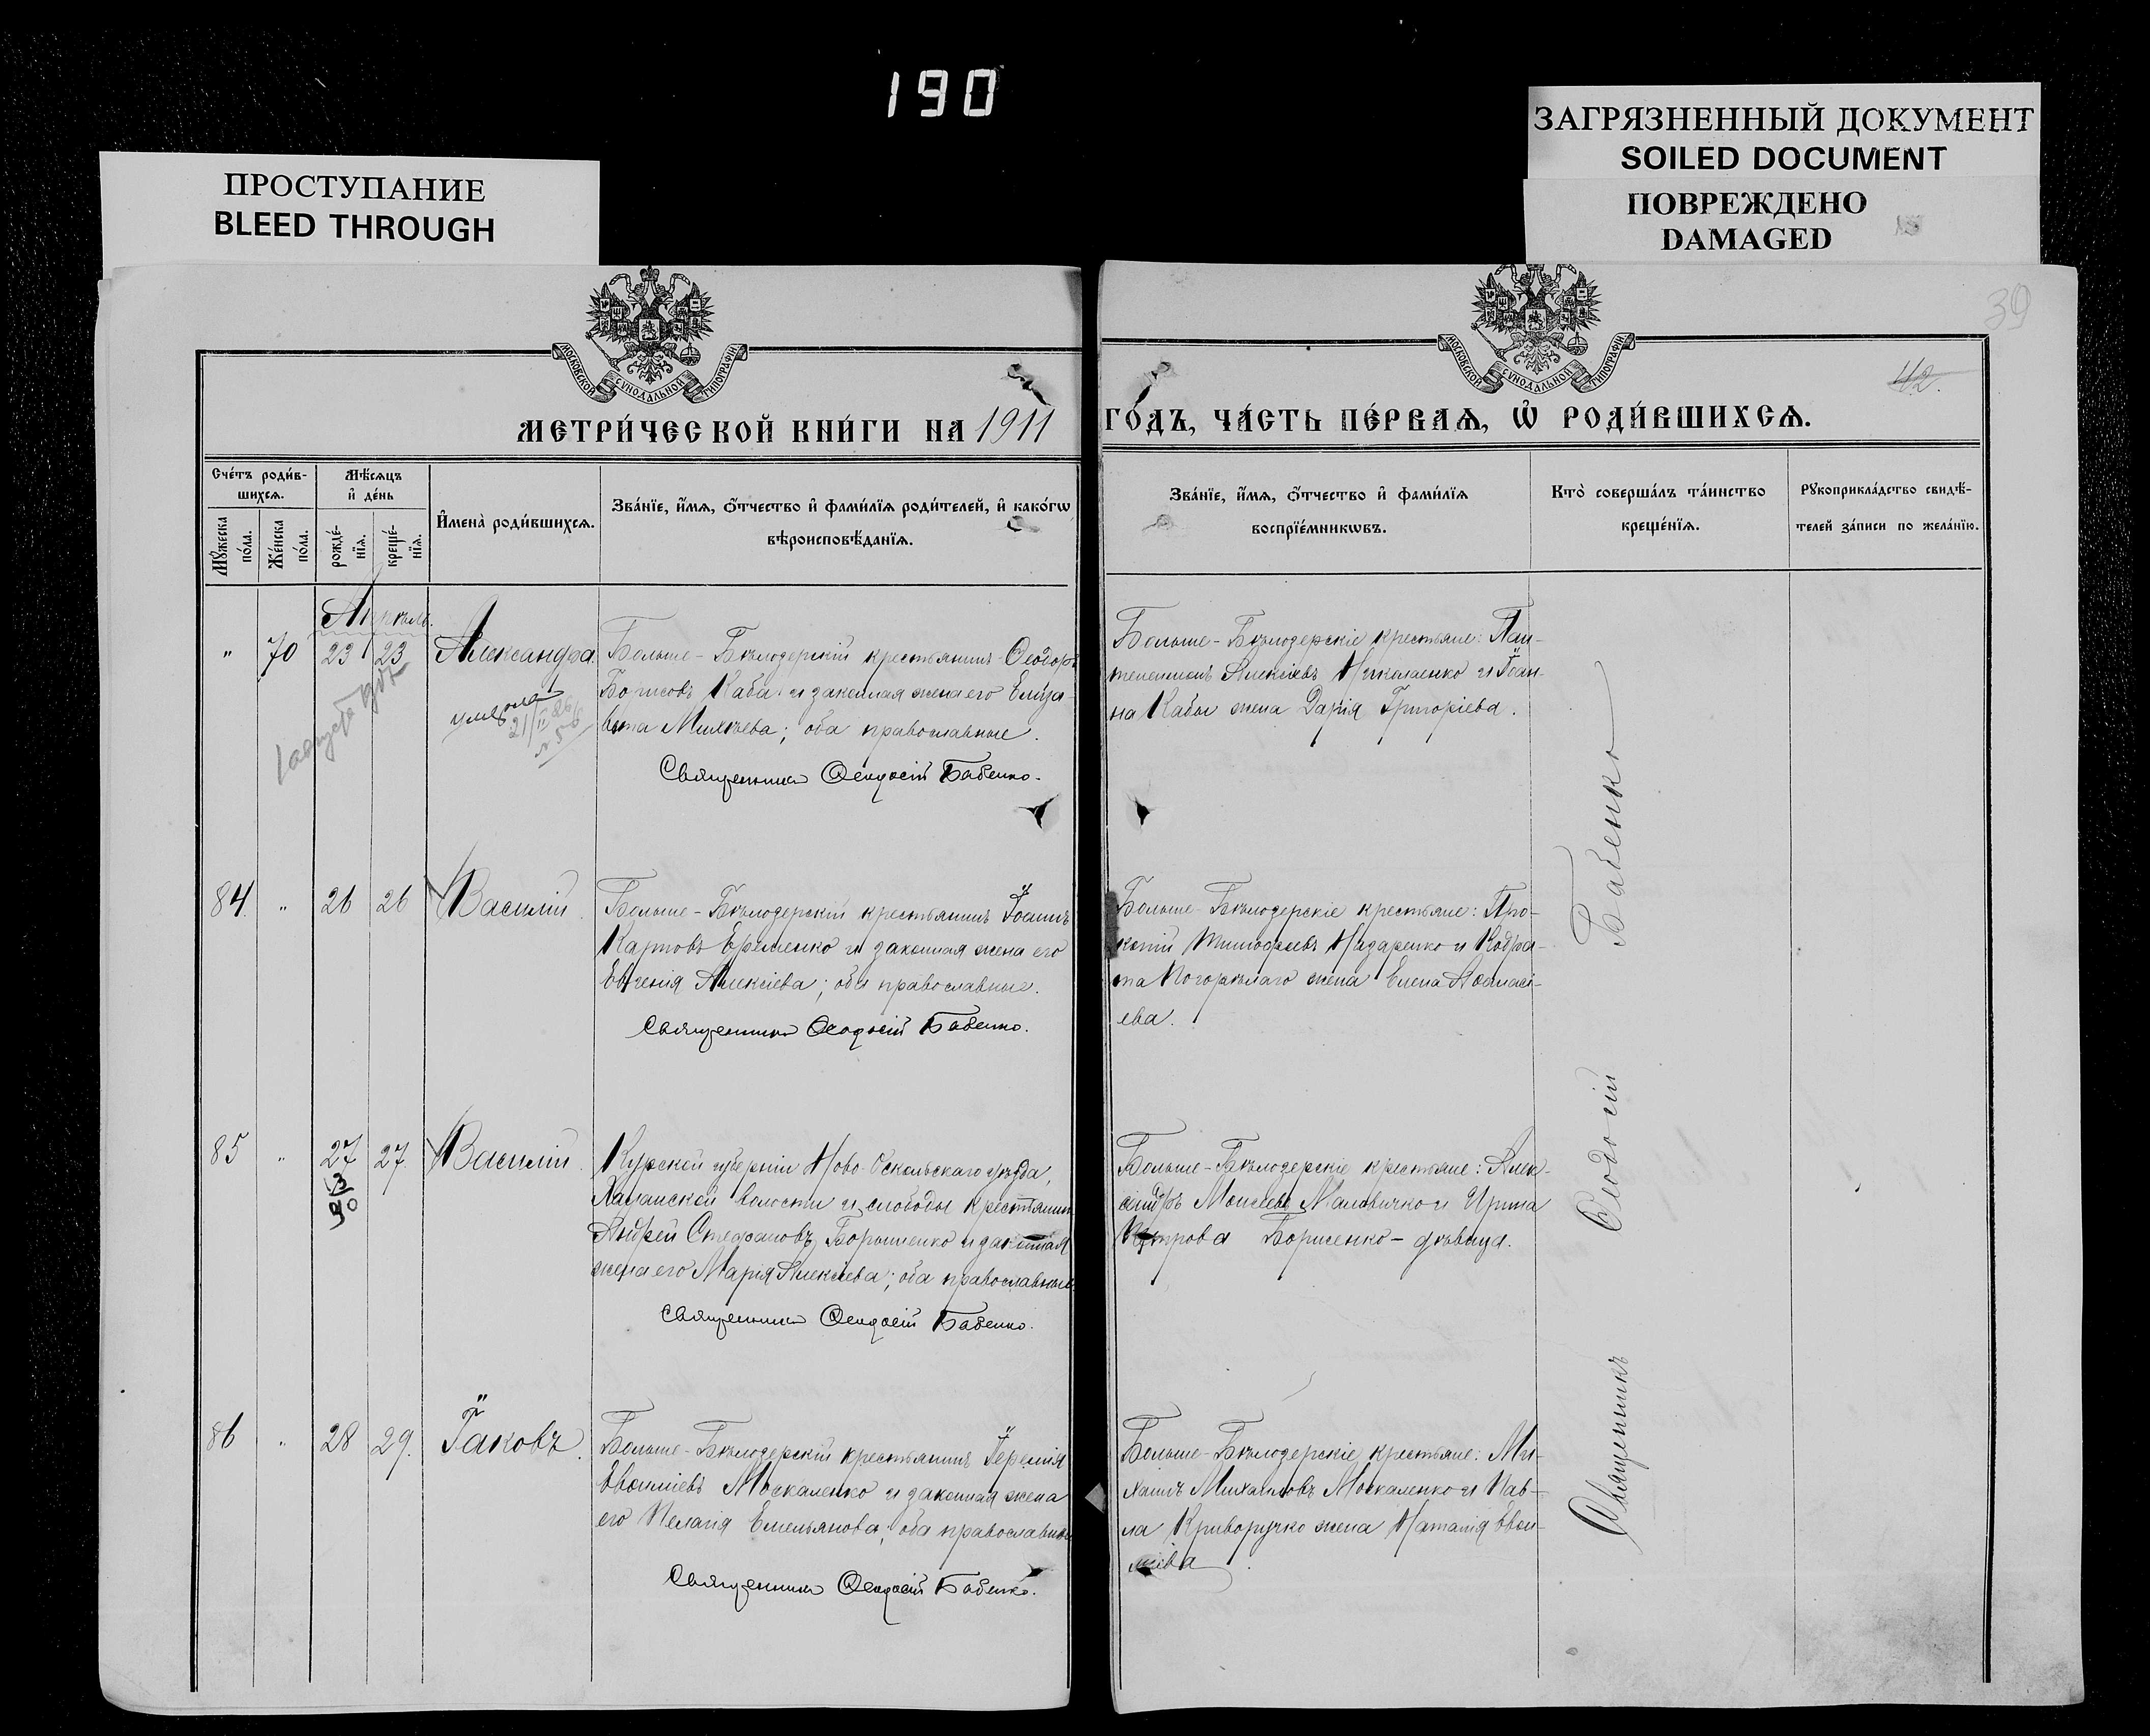 190
ПРОСТУПАНИЕ
BLEED THROUGH
ЗАГРЯЗНЕННЫЙ ДОКУМЕНТ
SOILED DOCUMENT
ПОВРЕЖДЕНО
DAMAGED
39
42.
МОСКОВСКОЙ СУНОДАЛЬНОЙ ТИПОГРАФІИ
МОСКОВСКОЙ СУНОДАЛЬНОЙ ТИПОГРАФІИ
МЕТРИ́ЧЕСКОЙ КНИ́ГИ НА 1911 ГО́ДЪ, ЧА́СТЬ ПЕ́РВАѦ, Ѡ҆ РОДИ́ВШИХСѦ.
Сче́тъ роди́в-
шихсѧ.
Мꙋ́жеска по́ла.
Же́нска по́ла.
Мѣ́сѧцъ
и҆ де́нь
рожде́-
нїѧ.
креще́-
нїѧ.
И҆мена̀ роди́вшихсѧ.
Зва́нїе, и҆́мѧ, ѻ҆́тчество и҆ фами́лїѧ роди́телей, и҆ како́гѡ
вѣроисповѣ́данїѧ.
Зва́нїе, и҆́мѧ, ѻ҆́тчество и҆ фами́лїѧ
воспрїе́мникѡвъ.
Кто̀ соверша́лъ та́инство
креще́нїѧ.
Рꙋкоприкла́дство свидѣ́-
телей за́писи по жела́нїю.
Апрѣль.
" 70 23 23 Александра
умерла
21/II 26
Больше-Бѣлозерскій крестьянинъ Ѳеодоръ
Борисовъ Каба и законная жена его Елиза-
вета Михѣева; оба православные.
Священникъ Ѳеодосій Бабенко.
Больше-Бѣлозерскіе крестьяне: Пан-
телеимонъ Алексіевъ Николаенко и Іоан-
на Кабы жена Дарія Григоріева.
84. " 26 26 Василій.
Больше-Бѣлозерскій крестьянинъ Іоаннъ
Карповъ Ерёменко и законная жена его
Евгенія Алексіева; оба православные.
Священникъ Ѳеодосій Бабенко.
Больше-Бѣлозерскіе крестьяне: Про-
копій Тимоѳеевъ Назаренко и Кодра-
та Погорѣлаго жена Елена Аѳанасі-
ева.
85 " 27 27. Василій.
Курской губерніи Ново-Оскольскаго уѣзда,
волости и слободы крестьянинъ
Андрей Стефановъ и законная
жена его Марія Алексіева; оба православные.
Священникъ Ѳеодосій Бабенко.
Больше-Бѣлозерскіе крестьяне: Алек-
сандръ Моисеевъ Маловичко и Ирина
Петрова Борисенко - дѣвица.
86 " 28 29. Іаковъ.
Больше-Бѣлозерскій крестьянинъ Іеремія
Москаленко и законная жена
его Пелагія Емельянова; оба православные
Священникъ Ѳеодосій Бабенко.
Больше-Бѣлозерскіе крестьяне: Ми-
хаилъ Михаиловъ Москаленко и Пав-
ла Криворучко жена Наталія
Священникъ Ѳеодосій Бабенко